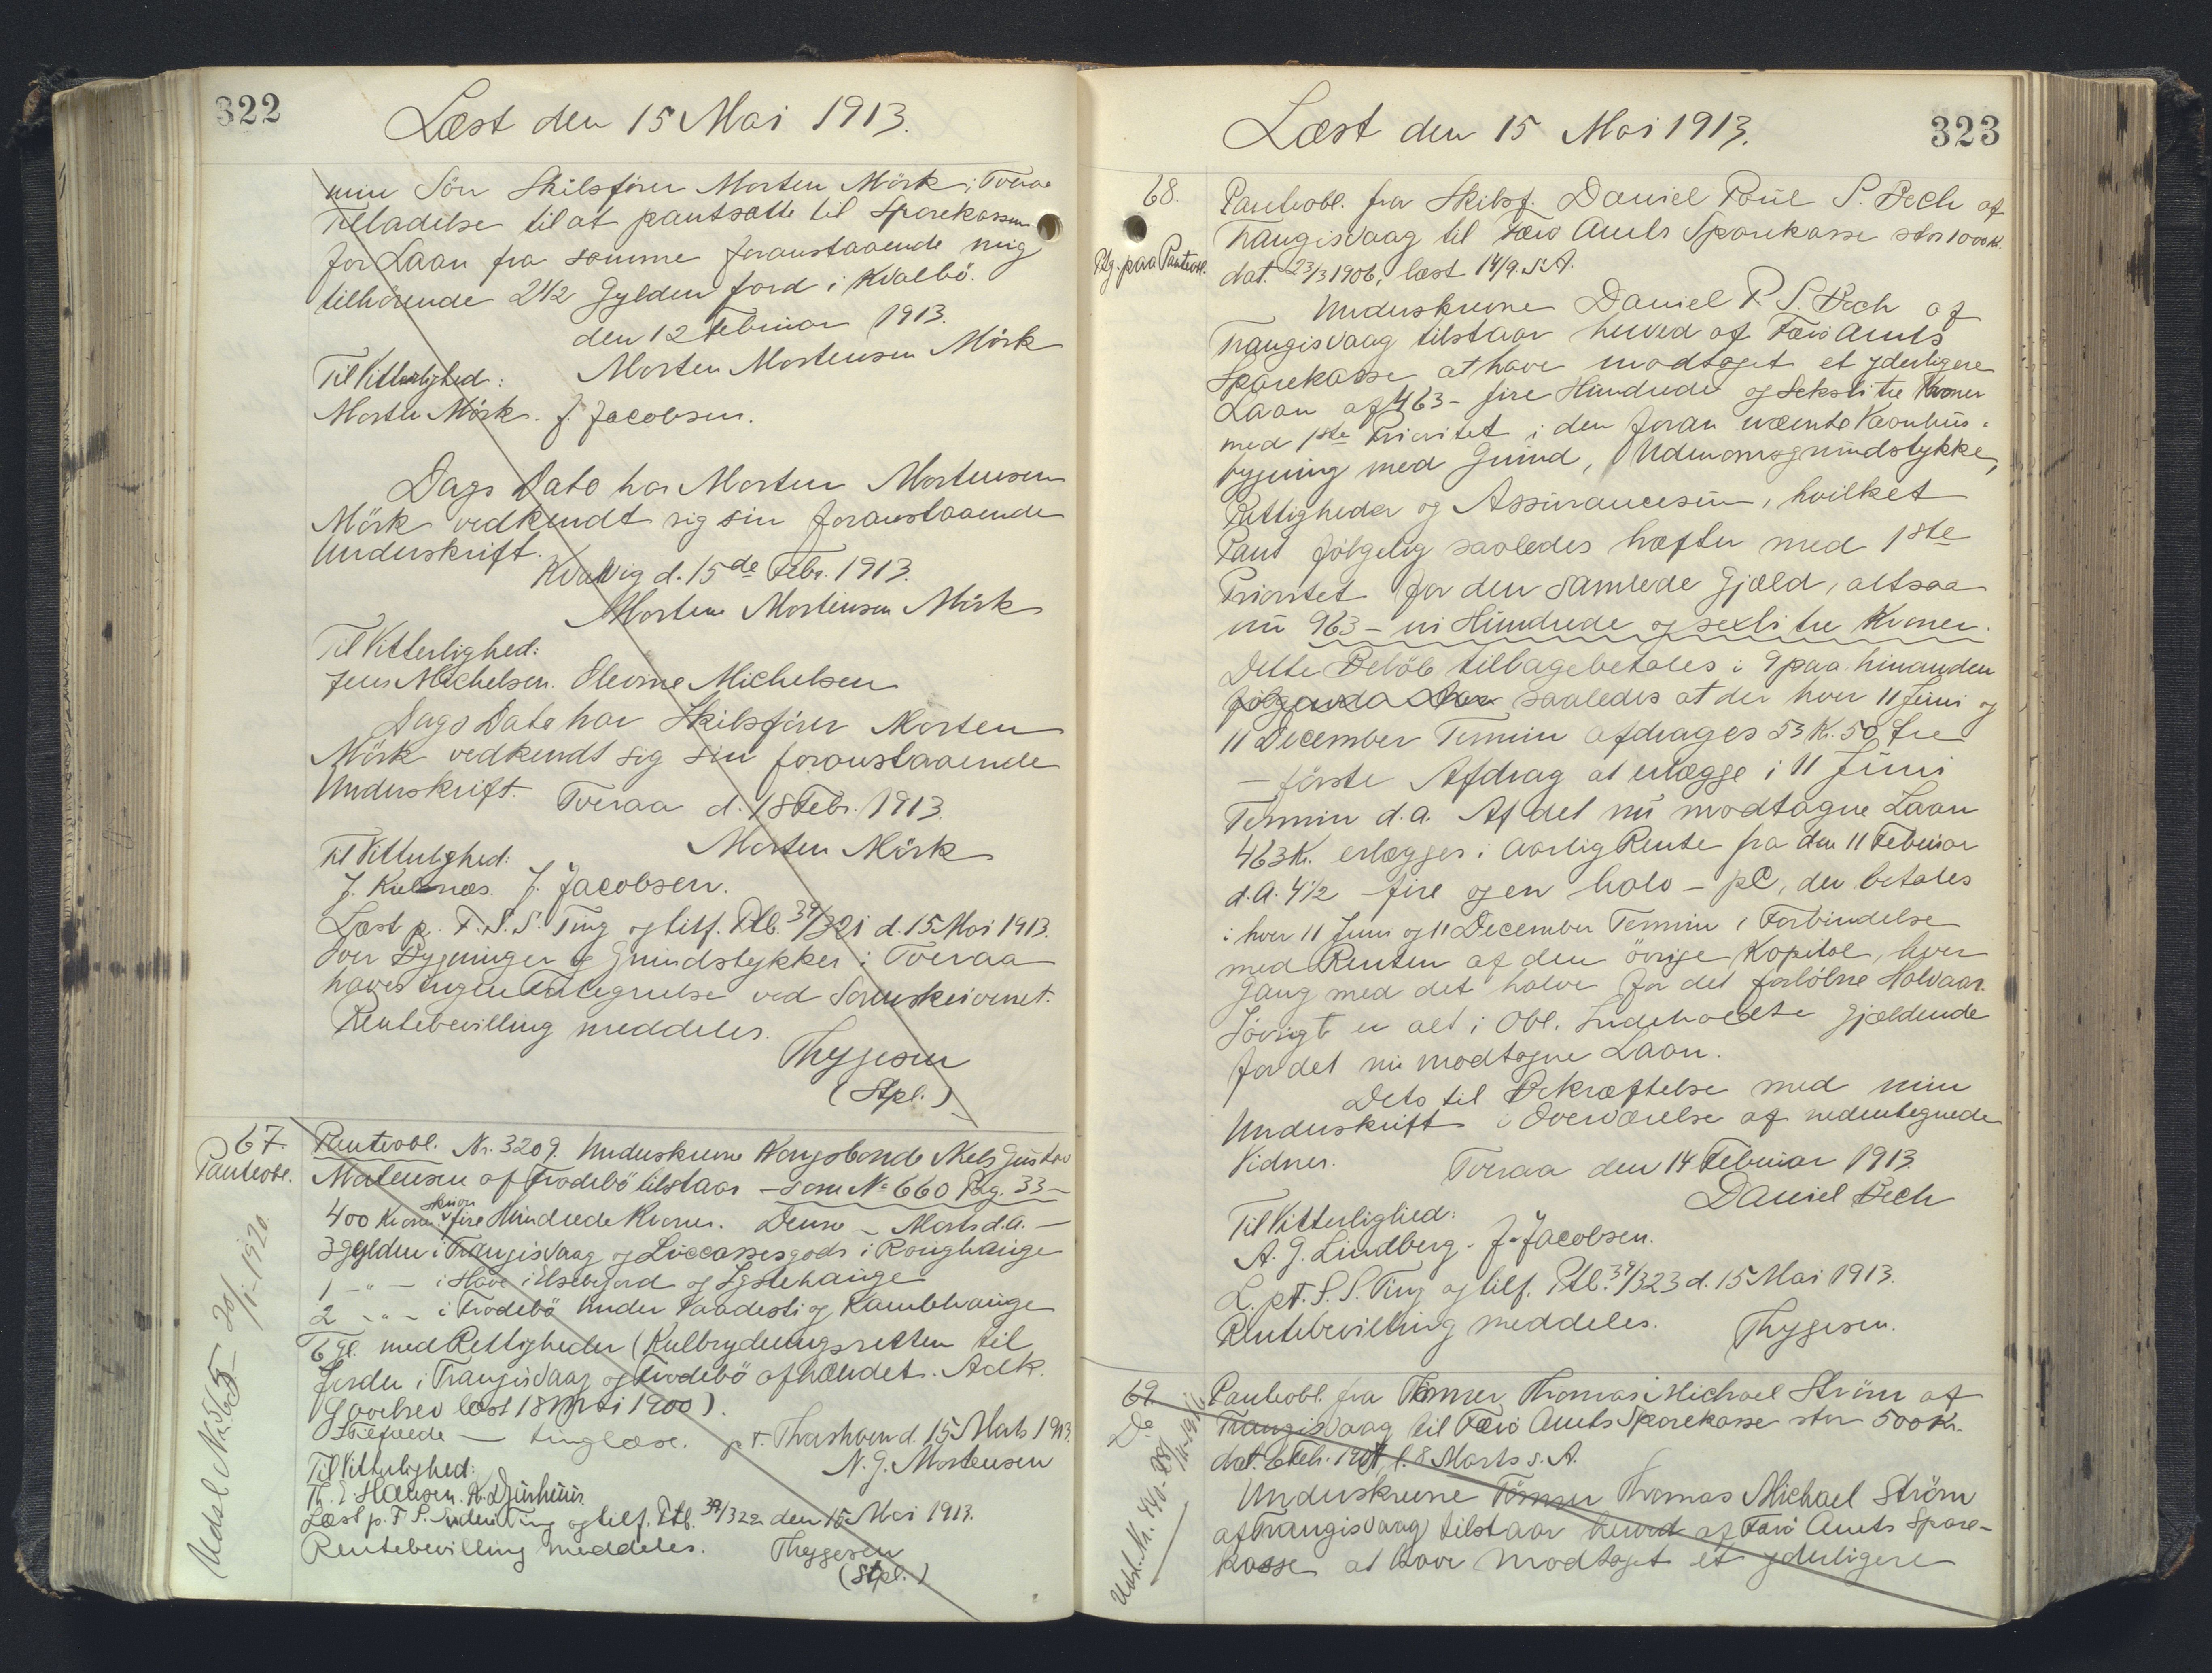 322
Læst den 15 Mai 1913.
min Sön Skibsförer Morten Mörk i Tveraa
Tilladelse til at pantsætte til Sparekassen
for Laan fra samme foranstaaende mig
tilhörende 2 1/2 Gylden Jord i Kvalbö.
den 12 Februar 1913.
Morten Mortensen Mörk
Til Vitterlighed:
Morten Mörk. J. Jacobsen.
Dags Dato har Morten Mortensen
Mörk vedkendt sig sin foranstaaende
Underskrift.
Kvalvig d. 15de Febr. 1913.
Morten Mortensen Mörk
Til Vitterlighed:
Jens Michelsen. Elevine Michelsen
Dags Dato har Skibsförer Morten
Mörk vedkendt sig sin foranstaaende
Underskrift.
Tveraa d. 18 Febr. 1913.
Morten Mörk
Til Vitterlighed:
J. Kulsnæs. J. Jacobsen.
Læst p. F. S. S. Ting og tilf. Ptb. 39/321 d. 15 Mai 1913.
Over Bygninger og Grundstykker i Tveraa
haves ingen ved Sorenskriveriet.
Rentebevilling meddeles.
Thygesen
(Stpl.)
67.
Panteobl.
Panteobl. Nr. 3209. Underskrevne Kongsbonde Niels Gustav
Mortensen af Frodebö tilstaar - som No 660 Pag. 33 -
400 Kroner skriver fire Hundrede Kroner. Denne - Marts d.A. -
3 gylden i Trangisvaag og Luccassesgods i
1 -"- i Hove i og
2 -"- i Frodebö under og
6 Gl. med Rettigheder (Kulbrydningsretten til
Jorden i Trangisvaag og Frodebö afhændet. Adk.
Gavebrev læst 18 Mai 1900).
- tinglæse. p.t. Thorshavn d. 15 Marts 1913.
N. G. Mortensen
Til Vitterlighed:
Th. E. Hansen. A. Djurhuus
Læst p. F. S. Ting og tilf. Ptb. 39/322 den 15 Mai 1913.
Rentebevilling meddeles.
Thygesen
(Stpl.)
20/1-1920.
323
Læst den 15 Mai 1913.
68.
Ptg. paa Panteobl.
Panteobl. fra Skibsf. Daniel Poul S. Bech af
Trangisvaag til Færö Amts Sparekasse stor 1000 K.
dat. 23/3 1906, læst 14/9 s.A.
Underskrevne Daniel P. S. Bech af
Trangisvaag tilstaar herved af Færö Amts
Sparekasse at have modtaget et yderligere
Laan af 463 - fire Hundrede og seksti tre Kroner
med 1ste Prioritet i den foran nævnte Vaanhus-
bygning med Grund, Udenomsgrundstykke,
Rettigheder og Assurancesum, hvilket
Pant fölgelig saaledes hæfter med 1ste
Prioritet for den samlede Gjæld, altsaa
nu 963 - ni Hundrede og sexti tre Kroner.
Dette Belöb tilbagebetales i 9 paa hinanden
fölgende Aar saaledes at der hver 11 Juni og
11 December Termin afdrages 53 K. 50 Øre
- förste Afdrag at erlægge i 11 Juni
Termin d.a. Af det nu modtagne Laan
463 K. erlægges i aarlig Rente fra den 11 Februar
d.A. 4 1/2 - fire og en halv - pC, der betales
i hver 11 Juni og 11 December Termin i Forbindelse
med Renten af den övrige Kapital, hver
Gang med det halve for det forlöbne Halvaar.
Iövrigt er alt i Obl. Indeholdte gjældende
for det nu modtagne Laan.
Dets til Bekræftelse med min
Underskrift i Overværelse af nedentegnede
Vidner.
Tveraa den 14 Februar 1913.
Daniel Bech
Til Vitterlighed:
A. G. Lindberg. J. Jacobsen.
L. p. F. S. S. Ting og tilf. Ptb. 39/323 d. 15 Mai 1913.
Rentebevilling meddeles.
Thygesen.
69.
Do
Panteobl. fra Tömrer Thomas Michael Ström af
Trangisvaag til Færö Amts Sparekasse stor 500 Kr.
dat. 6 Feb. l. 8 Marts s.A.
Underskrevne Tömrer Thomas Michael Ström
af Trangisvaag tilstaar herved af Færö Amts Spare-
kasse at have modtaget et yderligere